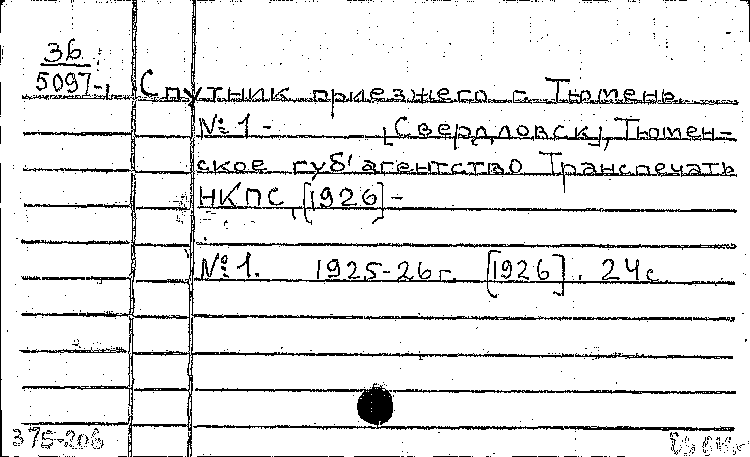 36
5097-1
Спутник приезжего г. Тюмень.
№ 1 - [Свердловск], Тюмен-
ское губ' агентство Транспечать
НКПС, [1926] -
№ 1. 1925-26 г. [1926]. 24 с
375-206